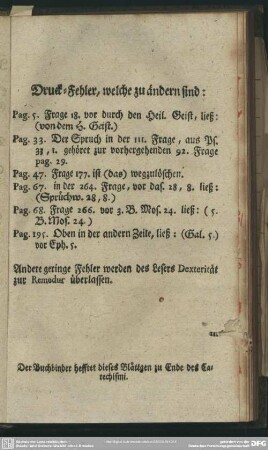 Druck-Fehler, welche zu ändern sind:
Pag. 5. Frage 18. vor durch den Heil. Geist, ließ:
(von dem H. Geist.)
Pag. 33. Der Spruch in der 111. Frage, aus Ps.
33, 1. gehöret zur vorhergehenden 92. Frage
pag. 29.
Pag. 47. Frage 177. ist (das) wegzulöschen.
Pag. 67. in der 264. Frage, vor das. 28, 8. ließ:
(Sprüchw. 28, 8.)
Pag. 68. Frage 266. vor 3. B. Mos. 24. ließ: (5.
B. Mos. 24.)
Pag. 195. Oben in der andern Zeile, ließ: (Gal. 5.)
vor Eph. 5.
Andere geringe Fehler werden des Lesers Dexterität
zur Remedur überlassen.
Der Buchbinder hefftet dieses Blättgen zu Ende des Ca-
techismi.